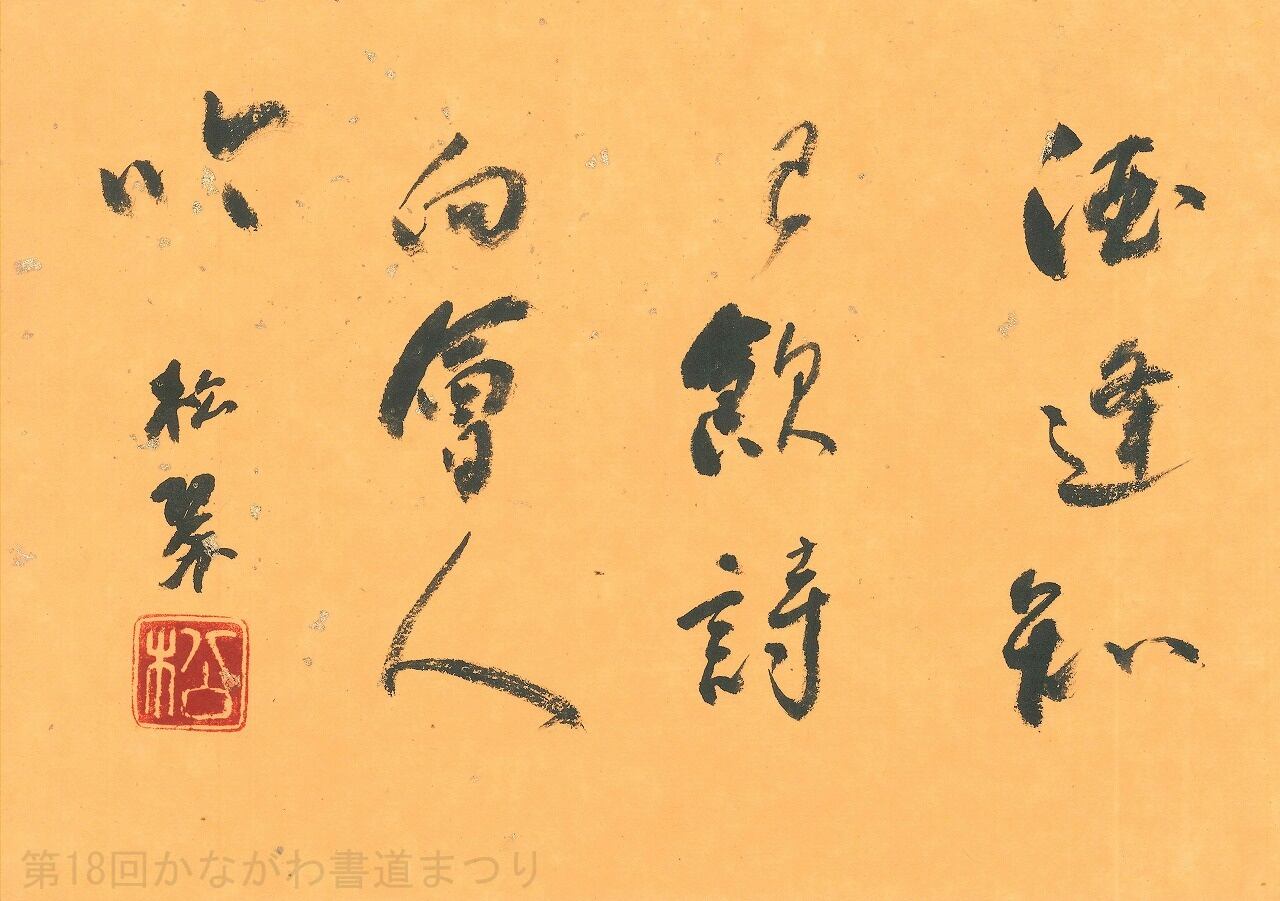 酒逢知
己飲詩
向會人
吟 松翠
松
第18回かながわ書道まつり